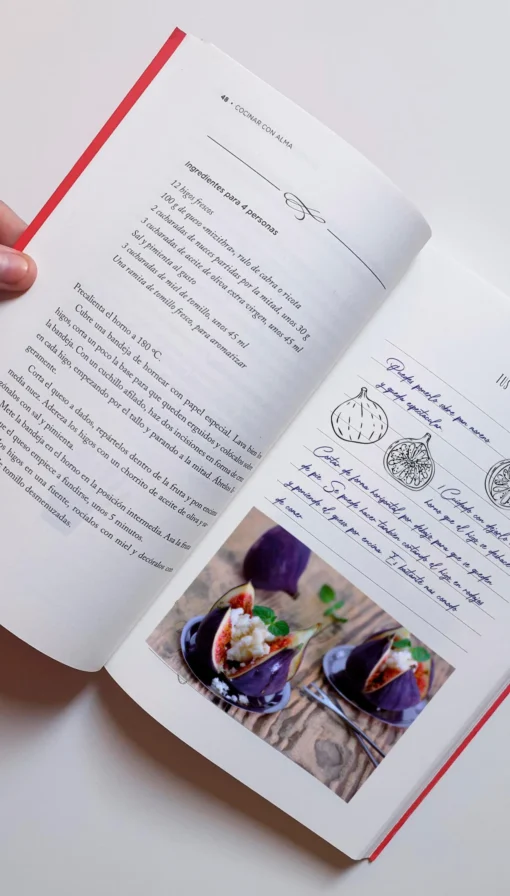 48 • COCINAR CON ALMA
Ingredientes para 4 personas
12 higos frescos
100 g de queso «mizithra», rulo de cabra o ricota
2 cucharadas de nueces partidas por la mitad, unos 30 g
3 cucharadas de aceite de oliva extra virgen, unos 45 ml
Sal y pimienta al gusto
3 cucharadas de miel de tomillo, unos 45 ml
Una ramita de tomillo fresco, para aromatizar
Precaliente el horno a 180 ºC.
Cubre una bandeja de hornear con papel especial. Lava bien los
higos, corta un poco la base para que queden erguidos y colócalos sobre
la bandeja. Con un cuchillo afilado, haz dos incisiones en forma de cruz
en cada higo, empezando por el tallo y parando a la mitad. Ábrelos li-
geramente.
Corta el queso a dados, repártelos dentro de la fruta y pon encima
media nuez. Adereza los higos con un chorrito de aceite de oliva y
con sal y pimienta.
Mete la bandeja en el horno en la posición intermedia. Asa la fruta
que el queso empiece a fundirse, unos 5 minutos.
los higos en una fuente, rocíalos con miel y decóralos con
tomillo desmenuzadas.
Puedes ponerle sobre pan moreno
y queda espectacular
¡Cuidado con dejarlo
horno que el higo se deshace
Córtalos de forma horizontal por debajo para que se queden
de pie. Se puede hacer también cortando el higo en rodajas
y poniendo el queso por encima. Es bastante más cómodo
de comer